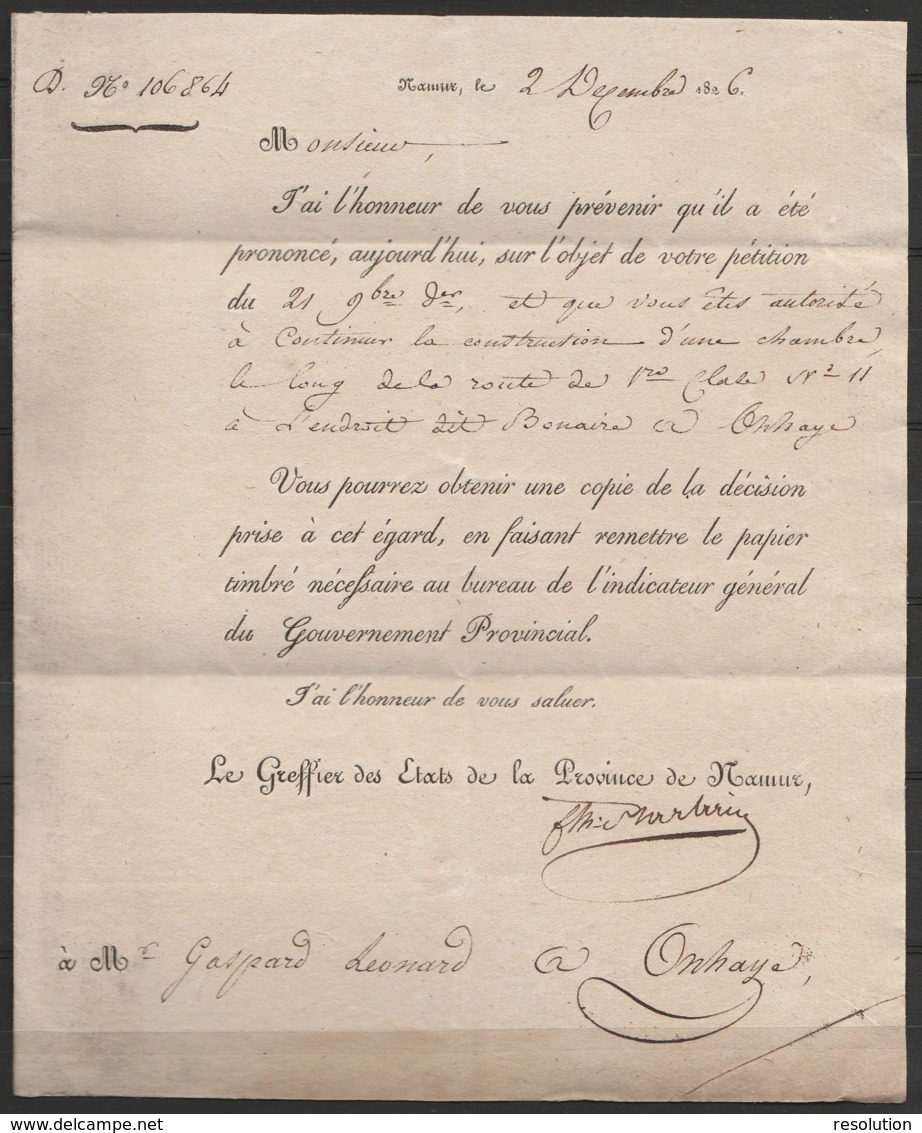 D. Nº 106864
Namur, le 2 Decembre 1826.
Monsieur,
J'ai l'honneur de vous prévenir qu'il a été
prononcé, aujourd'hui, sur l'objet de votre pétition
du 21 9bre der, et que vous êtes autorisé
à Continuer la construction d'une chambre,
le long de la route de 1re Classe Nº 11
à L'endroit dit Bonaire a Onhaye
Vous pourrez obtenir une copie de la décision
prise à cet égard, en faisant remettre le papier
timbré nécessaire au bureau de l'indicateur général
du Gouvernement Provincial.
J'ai l'honneur de vous saluer.
Le Greffier des Etats de la Province de Namur,
à Mr Gaspard Leonard a Onhaye,
www.delcampe.net
resolution